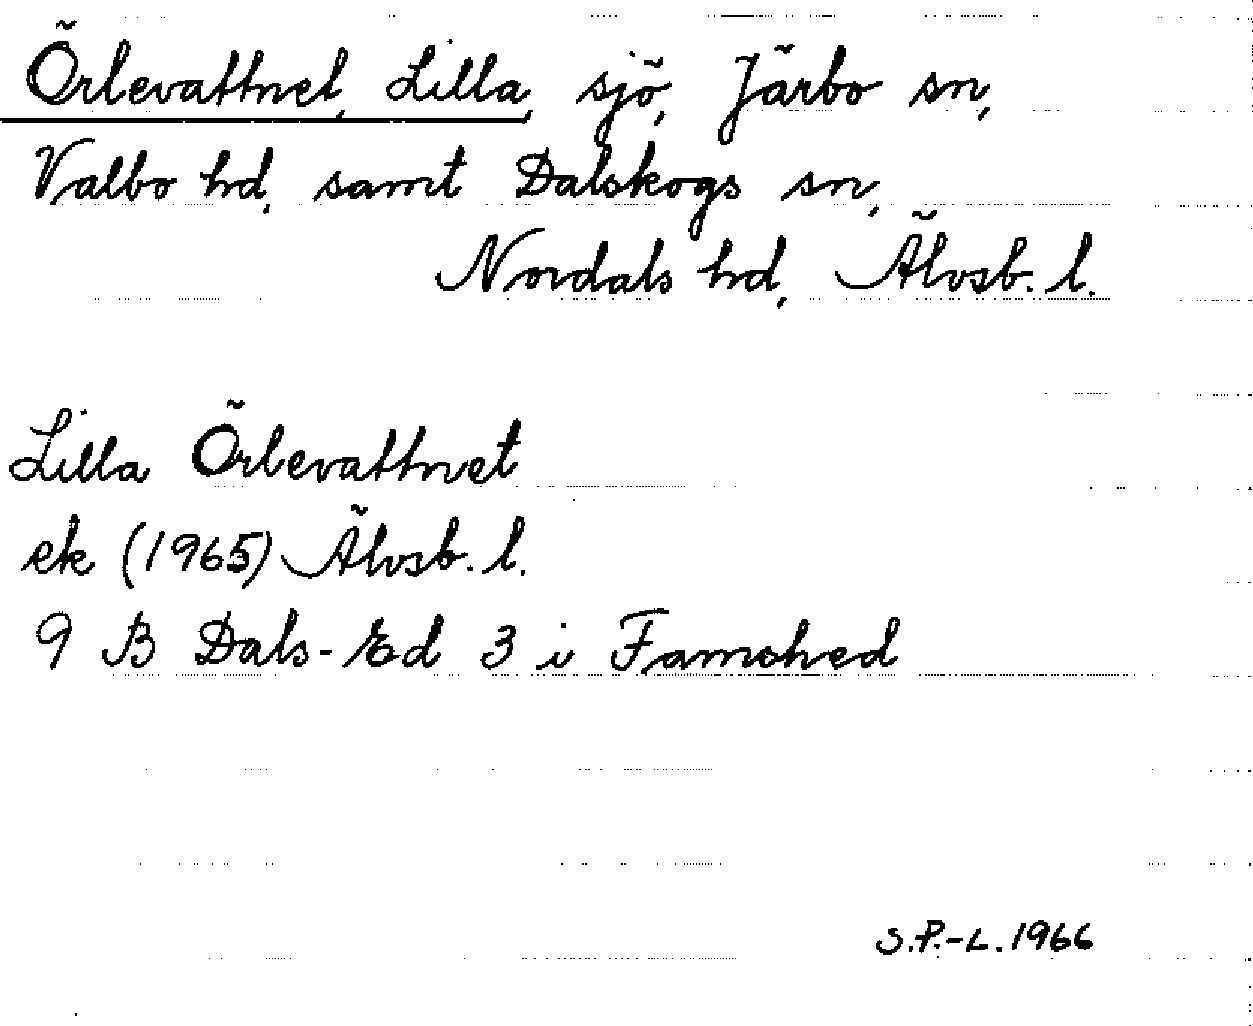 Örlevattnet, Lilla, sjö, Järbo sn,
Valbo hd, samt Dalskogs sn,
Nordals hd, Älvsb. l.
Lilla Örlevattnet
ek (1965) Älvsb. l.
9 B Dals-Ed 3 i Famshed
S.P.-L. 1966